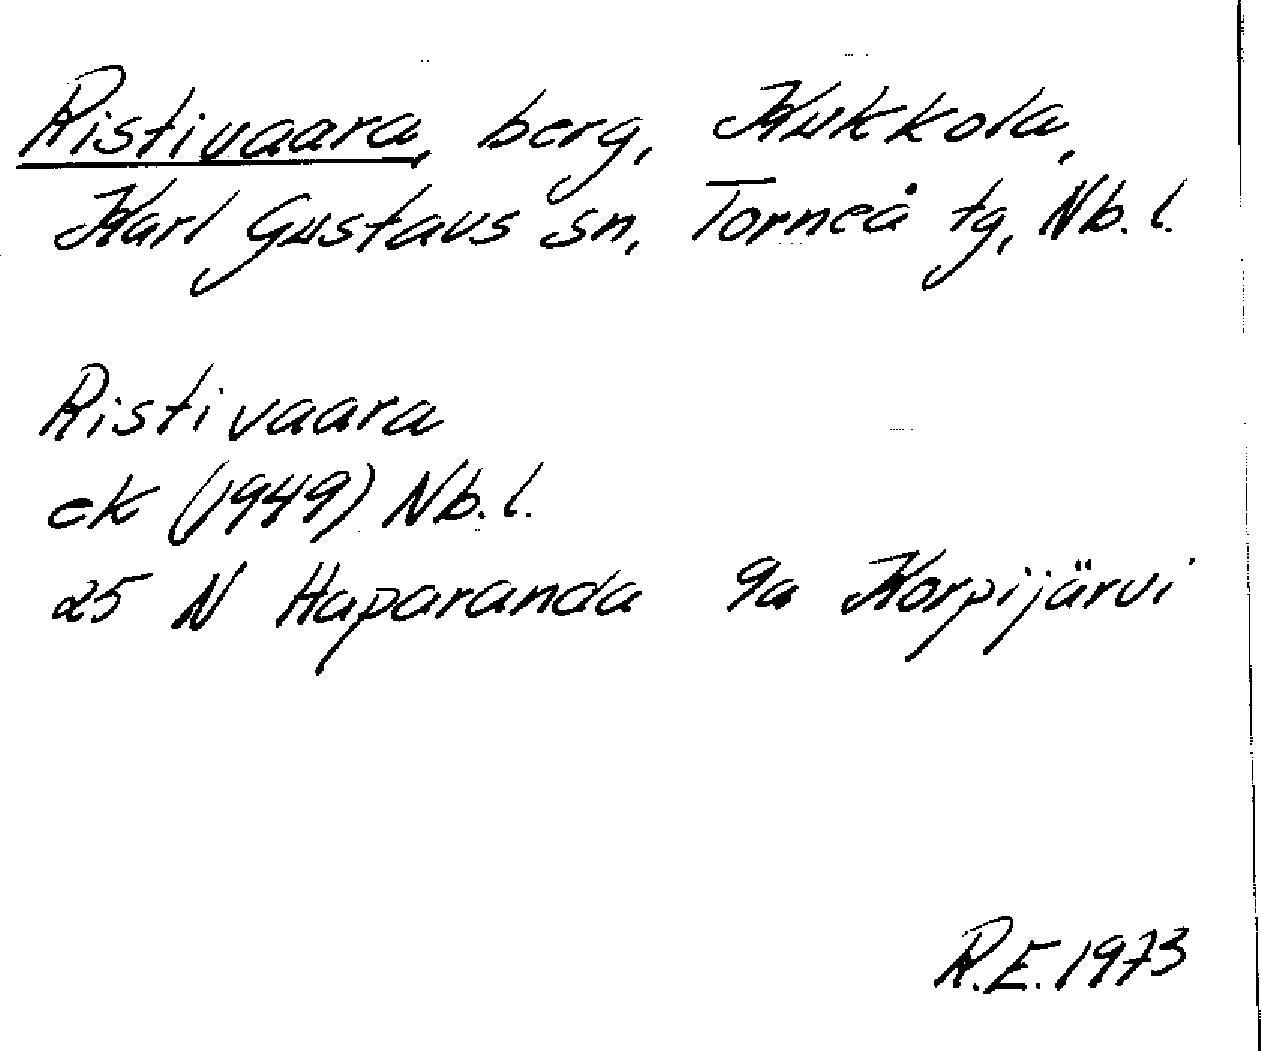 Ristivaara, berg, Kukkola,
Karl Gustavs sn, Torneå tg, Nb. l.
Ristivaara
ek (1949) Nb. l.
25 N Haparanda 9a Korpijärvi
R.E. 1973